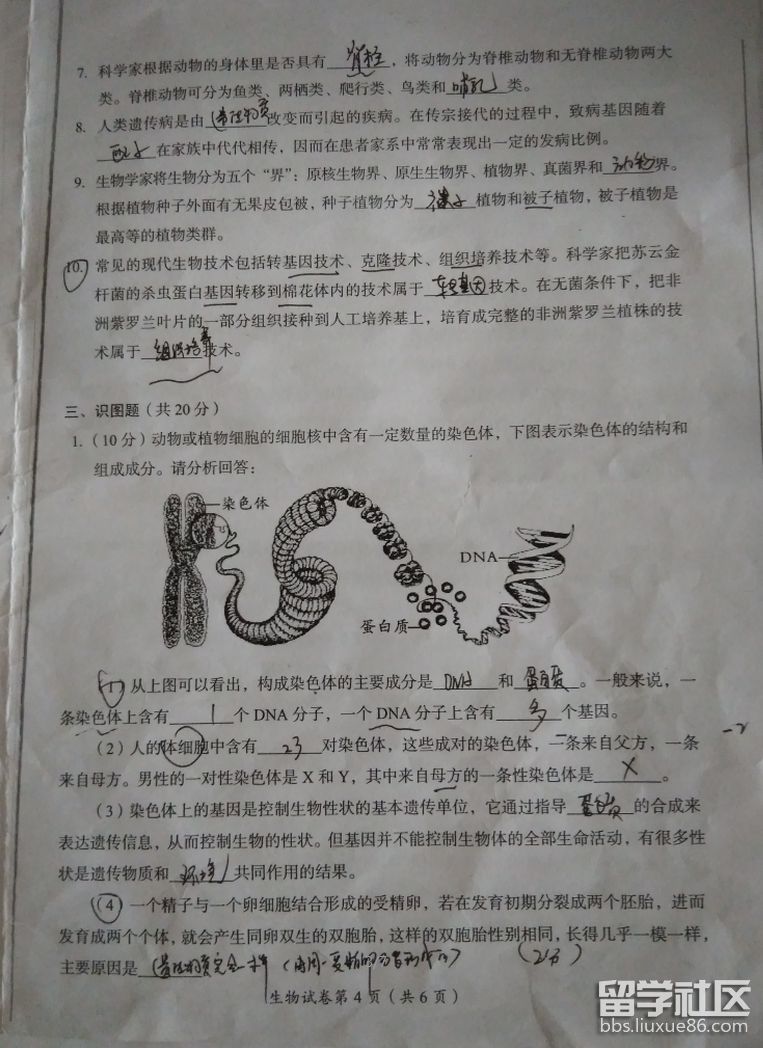 7. 科学家根据动物的身体里是否具有 脊柱 ，将动物分为脊椎动物和无脊椎动物两大
类。脊椎动物可分为鱼类、两栖类、爬行类、鸟类和 哺乳 类。
8. 人类遗传病是由 遗传物质 改变而引起的疾病。在传宗接代的过程中，致病基因随着
配子 在家族中代代相传，因而在患者家系中常常表现出一定的发病比例。
9. 生物学家将生物分为五个“界”：原核生物界、原生生物界、植物界、真菌界和 动物 界。
根据植物种子外面有无果皮包被，种子植物分为 裸子 植物和被子植物，被子植物是
最高等的植物类群。
10. 常见的现代生物技术包括转基因技术、克隆技术、组织培养技术等。科学家把苏云金
杆菌的杀虫蛋白基因转移到棉花体内的技术属于 转基因 技术。在无菌条件下，把非
洲紫罗兰叶片的一部分组织接种到人工培养基上，培育成完整的非洲紫罗兰植株的技
术属于 组织培养 技术。
三、识图题（共20分）
1.（10分）动物或植物细胞的细胞核中含有一定数量的染色体，下图表示染色体的结构和
组成成分。请分析回答：
染色体
DNA
蛋白质
（1）从上图可以看出，构成染色体的主要成分是 DNA 和 蛋白质 。一般来说，一
条染色体上含有 1 个DNA分子，一个DNA分子上含有 多 个基因。
（2）人的体细胞中含有 23 对染色体，这些成对的染色体，一条来自父方，一条 -2
来自母方。男性的一对性染色体是X和Y，其中来自母方的一条性染色体是 X 。
（3）染色体上的基因是控制生物性状的基本遗传单位，它通过指导 蛋白质 的合成来
表达遗传信息，从而控制生物的性状。但基因并不能控制生物体的全部生命活动，有很多性
状是遗传物质和 环境 共同作用的结果。
（4）一个精子与一个卵细胞结合形成的受精卵，若在发育初期分裂成两个胚胎，进而
发育成两个个体，就会产生同卵双生的双胞胎，这样的双胞胎性别相同，长得几乎一模一样，
主要原因是 遗传物质完全一样 （由同一受精卵 （2分）
生物试卷第4页（共6页）
留学社区
bbs.liuxue86.com